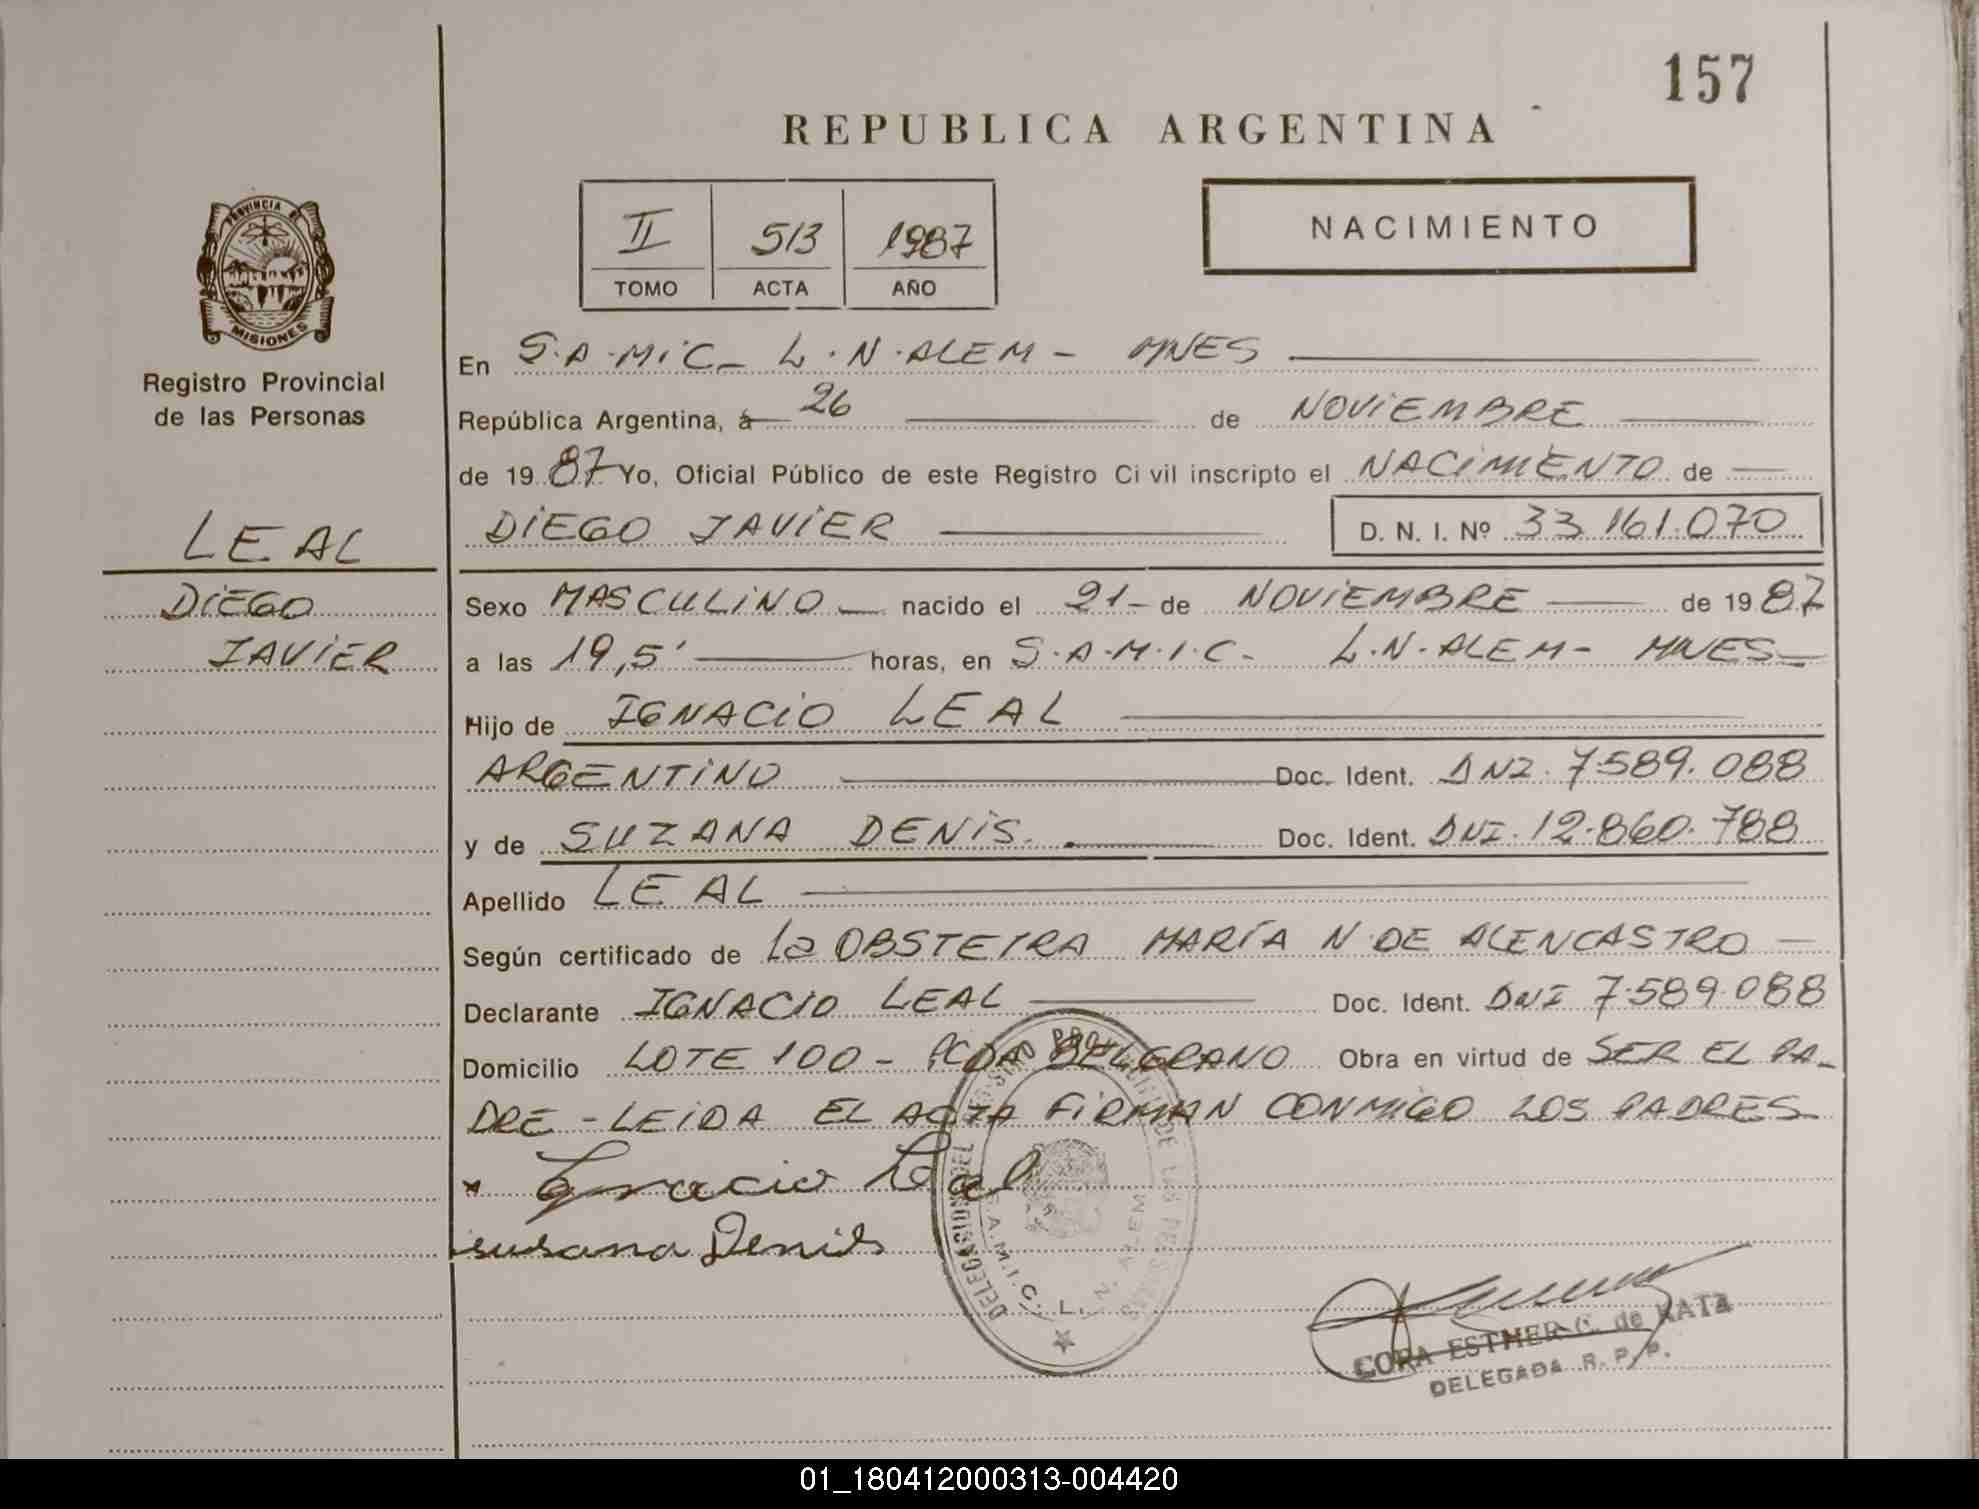 157
REPUBLICA ARGENTINA
II 513 1987
TOMO ACTA AÑO
NACIMIENTO
PROVINCIA DE
MISIONES
Registro Provincial
de las Personas
LEAL
DIEGO
JAVIER
En S.A.MIC- L.N.ALEM - MNES
República Argentina, a 26 de NOVIEMBRE
de 1987 Yo, Oficial Público de este Registro Civil inscripto el NACIMIENTO de
DIEGO JAVIER D. N. I. Nº 33.161.070
Sexo MASCULINO nacido el 21- de NOVIEMBRE de 1987
a las 19,5' horas, en S.A.M.I.C- L.N.ALEM- MNES-
Hijo de IGNACIO LEAL
ARGENTINO Doc. Ident. DNI. 7.589.088
y de SUZANA DENIS. Doc. Ident. DNI. 12.860.788
Apellido LEAL
Según certificado de la OBSTETRA MARÍA N. DE ALENCASTRO -
Declarante IGNACIO LEAL Doc. Ident. DNI 7.589.088
Domicilio LOTE 100 - PCDA BELGRANO Obra en virtud de SER EL PA-
DRE - LEIDA EL ACTA FIRMAN CONMIGO LOS PADRES
Ignacio Leal
susana Denis
DELEGACION DEL REGISTRO PROVINCIAL DE LAS PERSONAS
S.A.M.I.C. L. N. ALEM
CORA ESTHER C. de KATZ
DELEGADA R. P. P.
01_180412000313-004420